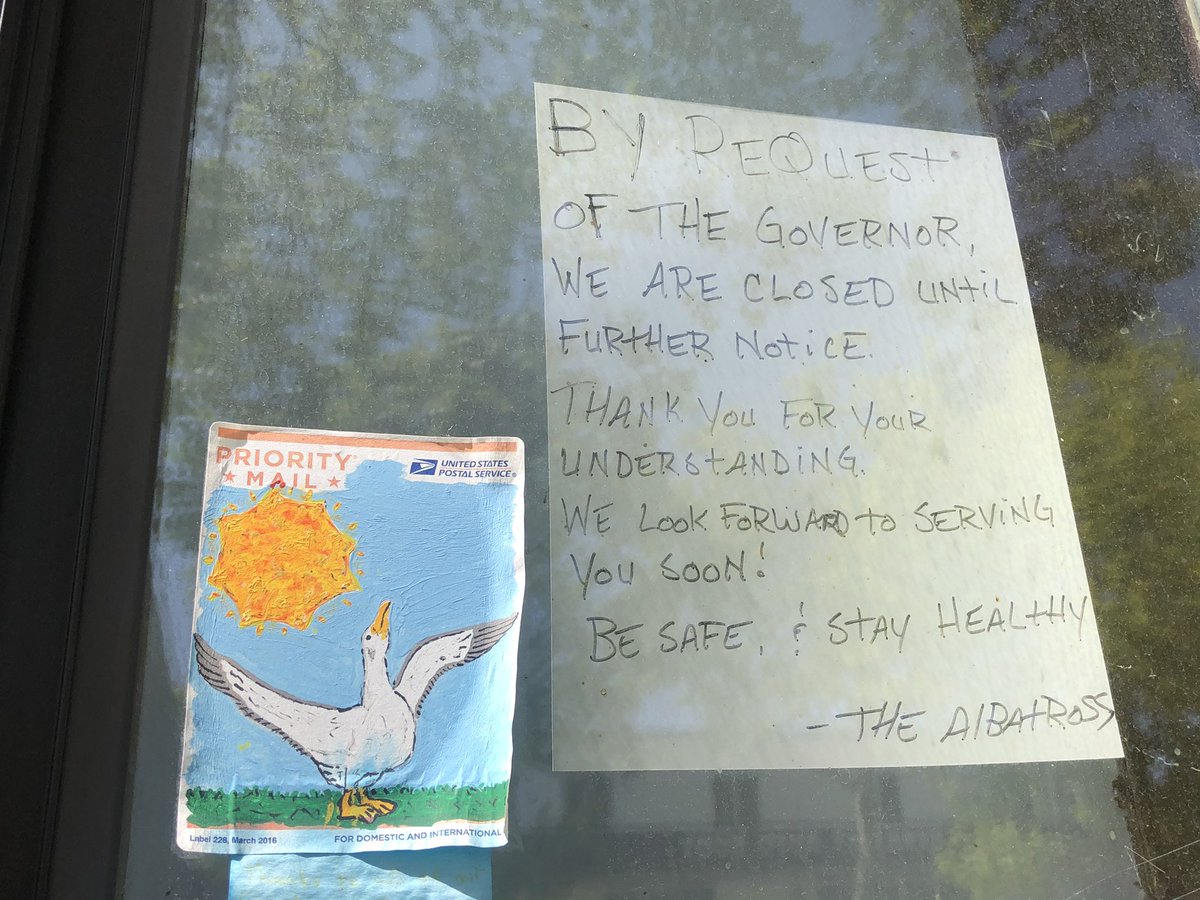 BY REQUEST
OF THE GOVERNOR,
WE ARE CLOSED UNTIL
FURTHER NOTICE.
THANK YOU FOR YOUR
UNDERSTANDING.
WE LOOK FORWARD TO SERVING
YOU SOON!
BE SAFE, & STAY HEALTHY
- THE ALBATROSS
PRIORITY
★ MAIL ★
UNITED STATES
POSTAL SERVICE®
Label 228, March 2016
FOR DOMESTIC AND INTERNATIONAL